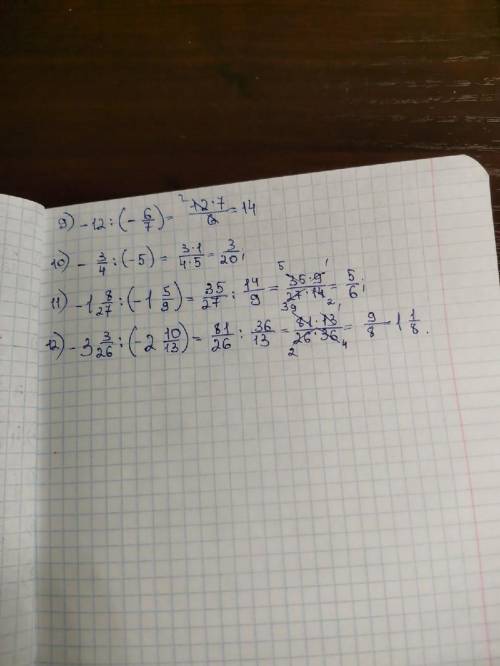 9) -12 : (-6/7) = 12·7/6 = 14
10) -3/4 : (-5) = 3·1/4·5 = 3/20;
11) -1 8/27 : (-1 5/9) = 35/27 : 14/9 = 35·9/27·14 = 5/6;
12) -3 3/26 : (-2 10/13) = 81/26 : 36/13 = 81·13/26·36 = 9/8 - 1 1/8.